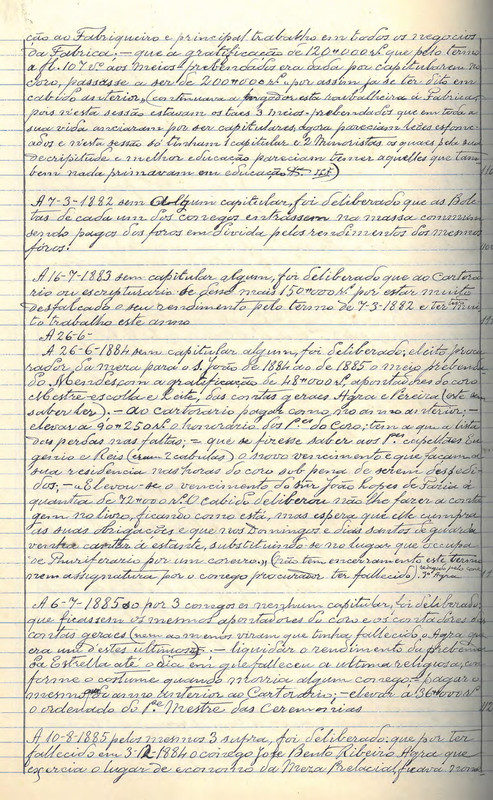 ção ao Fabriqueiro e principal trabalho em todos os negocios
da Fabrica; – que a gratificação de 120#000 rs. que pelo termo
a fl. 107 vº aos meios-prebendados era dada por capitularem no
coro, passasse a ser de 200#000 rs. por assim já se ter dito em
cabido anterior, (continuava a engodar esta roubalheira á Fabrica,
pois n'esta sessão estavam os taes 3 meios-prebendados que em toda a
sua vida anciaram por ser capitulares, agora pareciam lobos esfome-
ados e n'esta sessão só tinham 1 capitular e 2 Minoristas os quaes pela sua
decripitude e melhor educação pareciam temer aquelles que tam-
bem nada primavam em educação
A 7-3-1882 sem algum capitular, foi deliberado que as Bole-
tas de cada um dos conegos entrassem na massa commum
sendo pagos dos foros em divida pelos rendimentos dos mesmos
fóros.
A 16-7-1883 sem capitular algum, foi deliberado que ao Cartora-
rio ou escripturario se désse mais 150#000 rs. por estar muito
desfalcado o seu rendimento pelo termo de 7-3-1882 e ter mui-
to trabalho este anno
A 26-6-
A 26-6-1884 sem capitular algum, foi deliberado; eleito procu-
rador da mera para o S. João de 1884 ao de 1885 o meio prebenda-
do Mendes com a gratificação de 48#000 rs., apontadores do coro
Mestre-escola e Leite, das contas geraes Agra e Pereira (este sem
saber ler). – ao cartorario pagar como no anno anterior; –
elevar a 90#250 rs. o honorario dos do Coro, tem a que a lista
das perdas nas faltas; – que se fizesse saber aos capellães Eu-
genio e Reis (eram 2 cabulas) o novo vencimento e que façam a
sua residencia nas horas do coro sob pena de serem despedi-
dos; – "Elevou-se o vencimento do snr João Lopes de Faria á
quantia de 72#000 rs. O Cabido deliberou não lhe fazer a conta-
gem no livro, ficando como está, mas espera que elle cumpra
as suas obrigações e que nos Domingos e dias santos de guarda
venha cantar á estante, substituindo-se no lugar que occupa
de Thuriferario por um coreiro." (Não tem encerramento este termo
nem assignatura por o conego procurador ter fallecido).
A 6-7-1885 só por 3 conegos e nenhum capitular, foi deliberado;
que ficassem os mesmos apontadores do coro e os contadores das
contas geraes (nem ao menos viram que tinha fallecido o Agra que
era um d'estes ultimos). – liquidar o rendimento da prebenda
da Estrella até o dia em que falleceu a ultima religiosa, con-
forme o costume quando morria algum conego – pagar o
mesmo que no anno anterior ao Cartorario; – elevar a 36#000 rs.
o ordenado do Pe. Mestre das Ceremonias
A 10-8-1885 pelos mesmos 3 supra, foi deliberado: que por ter
fallecido em 3-12-1884 o conego José Bento Ribeiro Agra que
exercia o lugar de economo da Meza Prelacial, ficava nome-